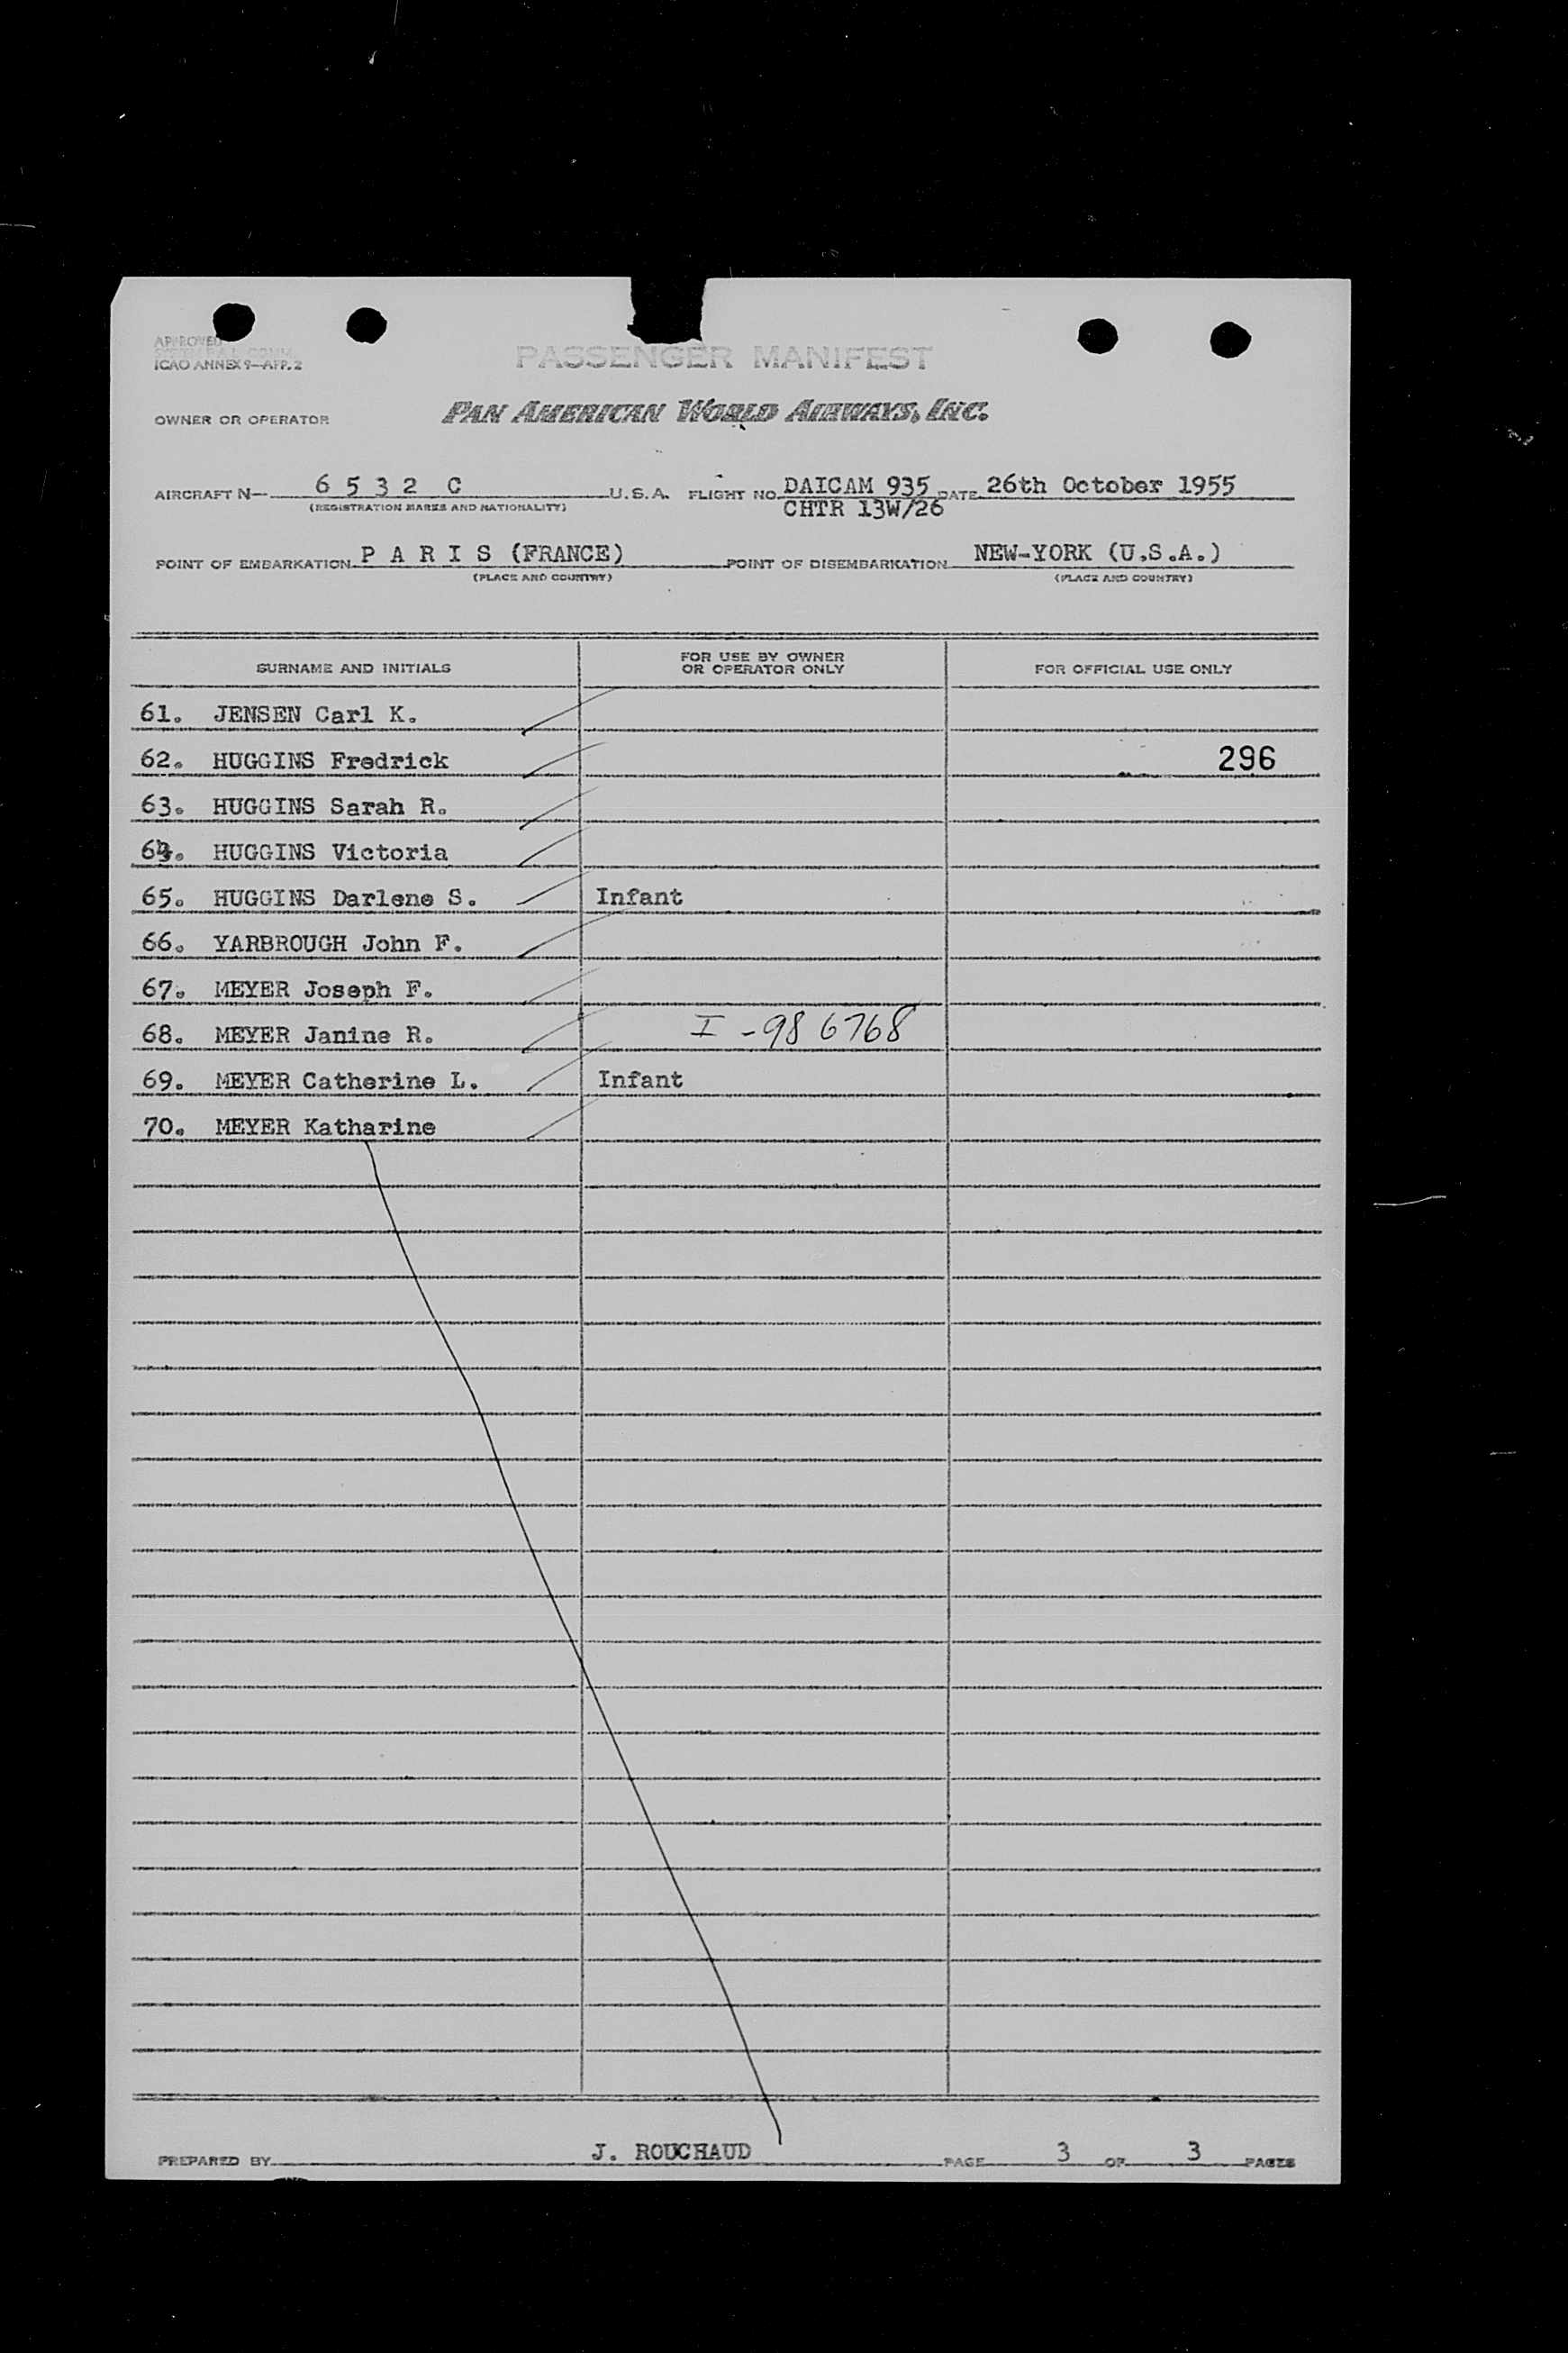 APPROVED
ICAO ANNEX 9—APP. 2
PASSENGER MANIFEST
OWNER OR OPERATOR PAN AMERICAN WORLD AIRWAYS, INC.
AIRCRAFT N— 6 5 3 2 C U.S.A. FLIGHT NO. DAICAM 935 DATE 26th October 1955
(REGISTRATION MARKS AND NATIONALITY) CHTR 13W/26
POINT OF EMBARKATION P A R I S (FRANCE) POINT OF DISEMBARKATION NEW-YORK (U.S.A.)
(PLACE AND COUNTRY) (PLACE AND COUNTRY)
SURNAME AND INITIALS FOR USE BY OWNER OR OPERATOR ONLY FOR OFFICIAL USE ONLY
61. JENSEN Carl K.
62. HUGGINS Fredrick 296
63. HUGGINS Sarah R.
64. HUGGINS Victoria
65. HUGGINS Darlene S. Infant
66. YARBROUGH John F.
67. MEYER Joseph F.
68. MEYER Janine R. I -98 6768
69. MEYER Catherine L. Infant
70. MEYER Katharine
PREPARED BY J. ROUCHAUD PAGE 3 OF 3 PAGES